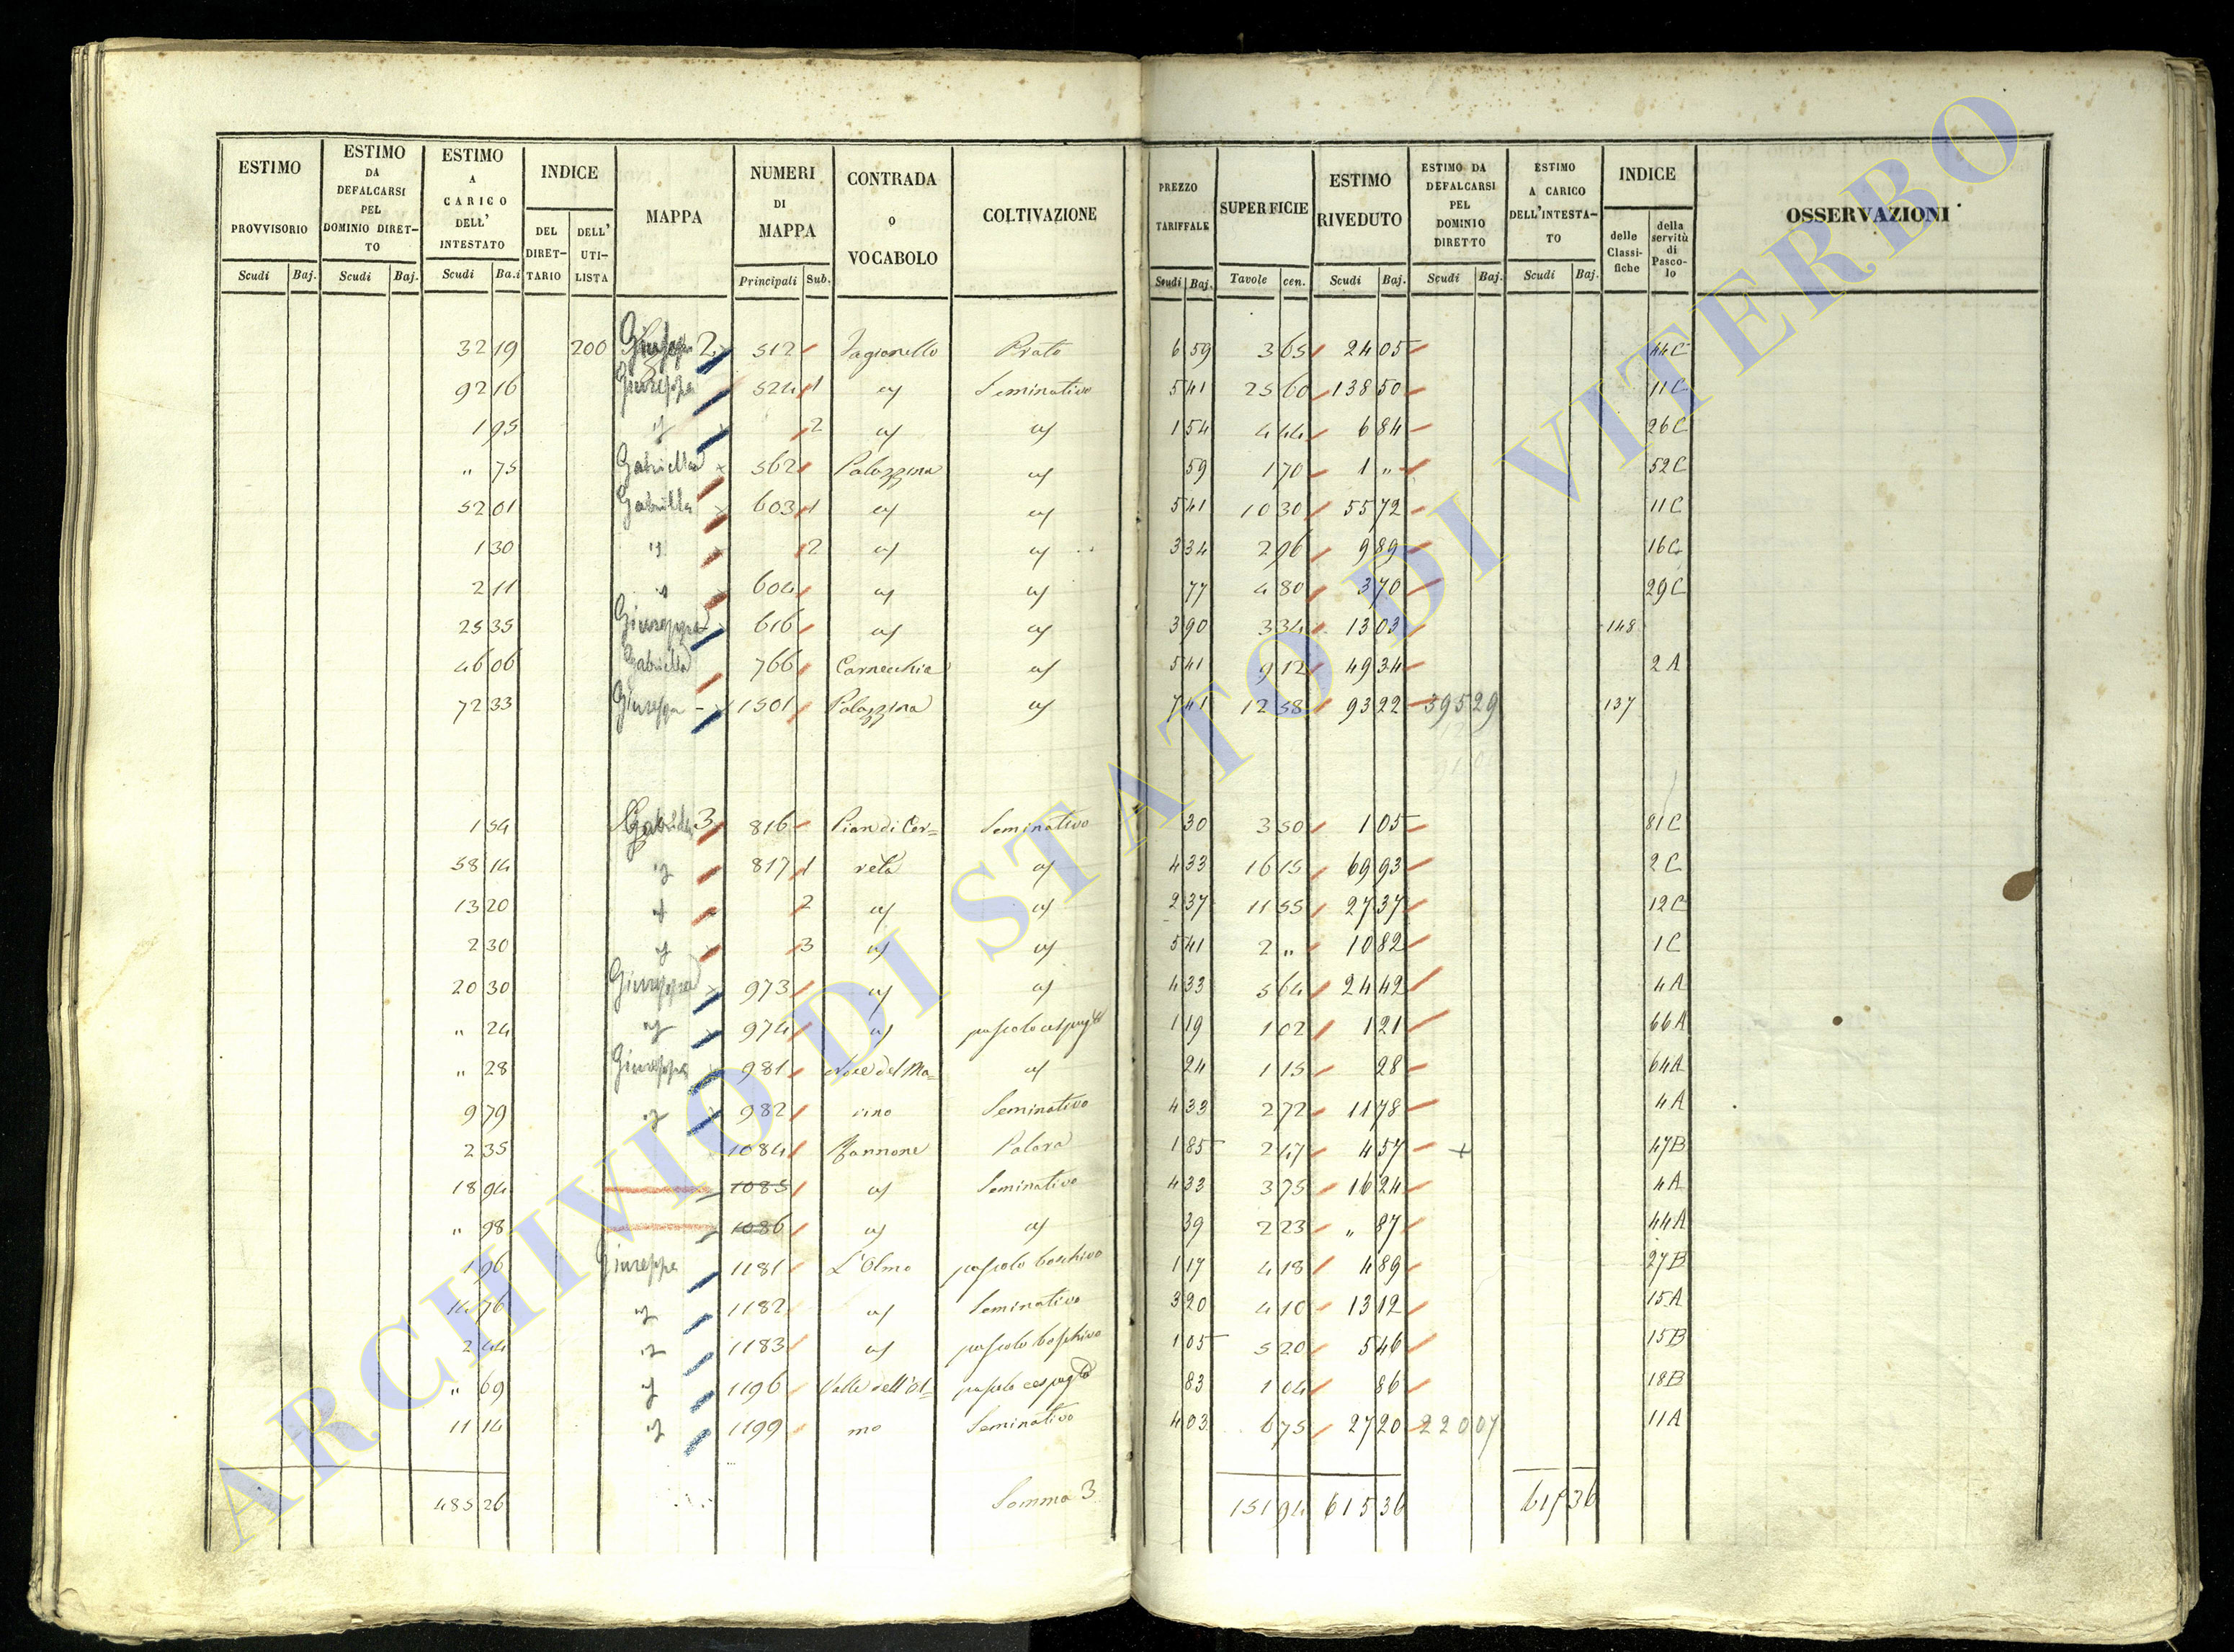 ESTIMO PROVVISORIO Scudi Baj. ESTIMO DA DEFALCARSI PEL DOMINIO DIRET-TO Scudi Baj. ESTIMO A CARICO DELL' INTESTATO Scudi Ba.i INDICE DEL DIRET-TARIO DELL' UTI-LISTA MAPPA NUMERI DI MAPPA Principali Sub. CONTRADA o VOCABOLO COLTIVAZIONE PREZZO TARIFFALE Scudi Baj. SUPERFICIE Tavole cen. ESTIMO RIVEDUTO Scudi Baj. ESTIMO DA DEFALCARSI PEL DOMINIO DIRETTO Scudi Baj. ESTIMO A CARICO DELL'INTESTA-TO Scudi Baj. INDICE delle Classi-fiche della servitù di Pasco-lo OSSERVAZIONI
32 19 200 Giuseppa 2 512 Prato 6 59 3 65 24 05 44C
92 16 Giuseppa 524 1 Seminativo 5 41 25 60 138 50 11C
1 95 2 1 54 4 44 6 84 26C
" 75 Gabriella 562 Palazzina 59 1 70 1 " 52C
52 01 Gabriella 603 1 5 41 10 30 55 72 11C
1 30 2 3 34 2 96 9 89 16C
2 11 604 77 4 80 3 70 29C
25 35 Giuseppa 616 3 90 3 34 13 03 148
46 06 Gabriella 766 Cornecchia 5 41 9 12 49 34 2A
72 33 Giuseppa 1501 Palazzina 7 41 12 58 93 22 395 29 137
1 54 Gabriella 3 816 Pian di Cer= Seminativo 30 3 50 1 05 81C
58 14 817 1 reta 4 33 16 15 69 93 2C
13 20 2 2 37 11 55 27 37 12C
2 30 3 5 41 2 " 10 82 1C
20 30 Giuseppa 973 4 33 5 64 24 42 4A
" 24 974 pascolo cespugl 1 19 1 02 1 21 66A
" 28 Giuseppa 981 Noce del Ma= 24 1 15 28 64A
9 79 982 rino Seminativo 4 33 2 72 11 78 4A
2 35 1084 Zannone Palara 1 85 2 47 4 57 + 47B
18 94 1085 Seminativo 4 33 3 75 16 24 4A
" 98 1086 39 2 23 " 87 44A
1 96 Giuseppa 1181 L'Olmo pascolo boschivo 1 17 4 18 4 89 27B
14 76 1182 Seminativo 3 20 4 10 13 12 15A
2 44 1183 pascolo boschivo 1 05 5 20 5 46 15B
" 69 1196 Valle dell'Ol= pascolo cespugl 83 1 04 86 18B
11 14 1199 mo Seminativo 4 03 6 75 27 20 220 07 11A
485 26 Somma 3 151 94 615 36 615 36
ARCHIVIO DI STATO DI VITERBO